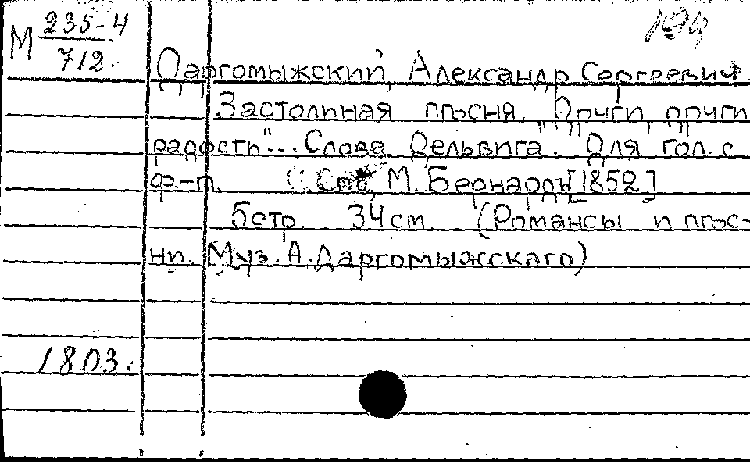 М 235-4
712.
194
Даргомыжский, Александр Сергеевич
Застольная пѣсня. „Други, други
радость"... Слова Дельвига. Для гол. с
ф-п. СПб, М. Бернардъ [1852]
6 стр. 34 см. (Романсы и пѣс-
ни. Муз. А. Даргомыжскаго)
1803.